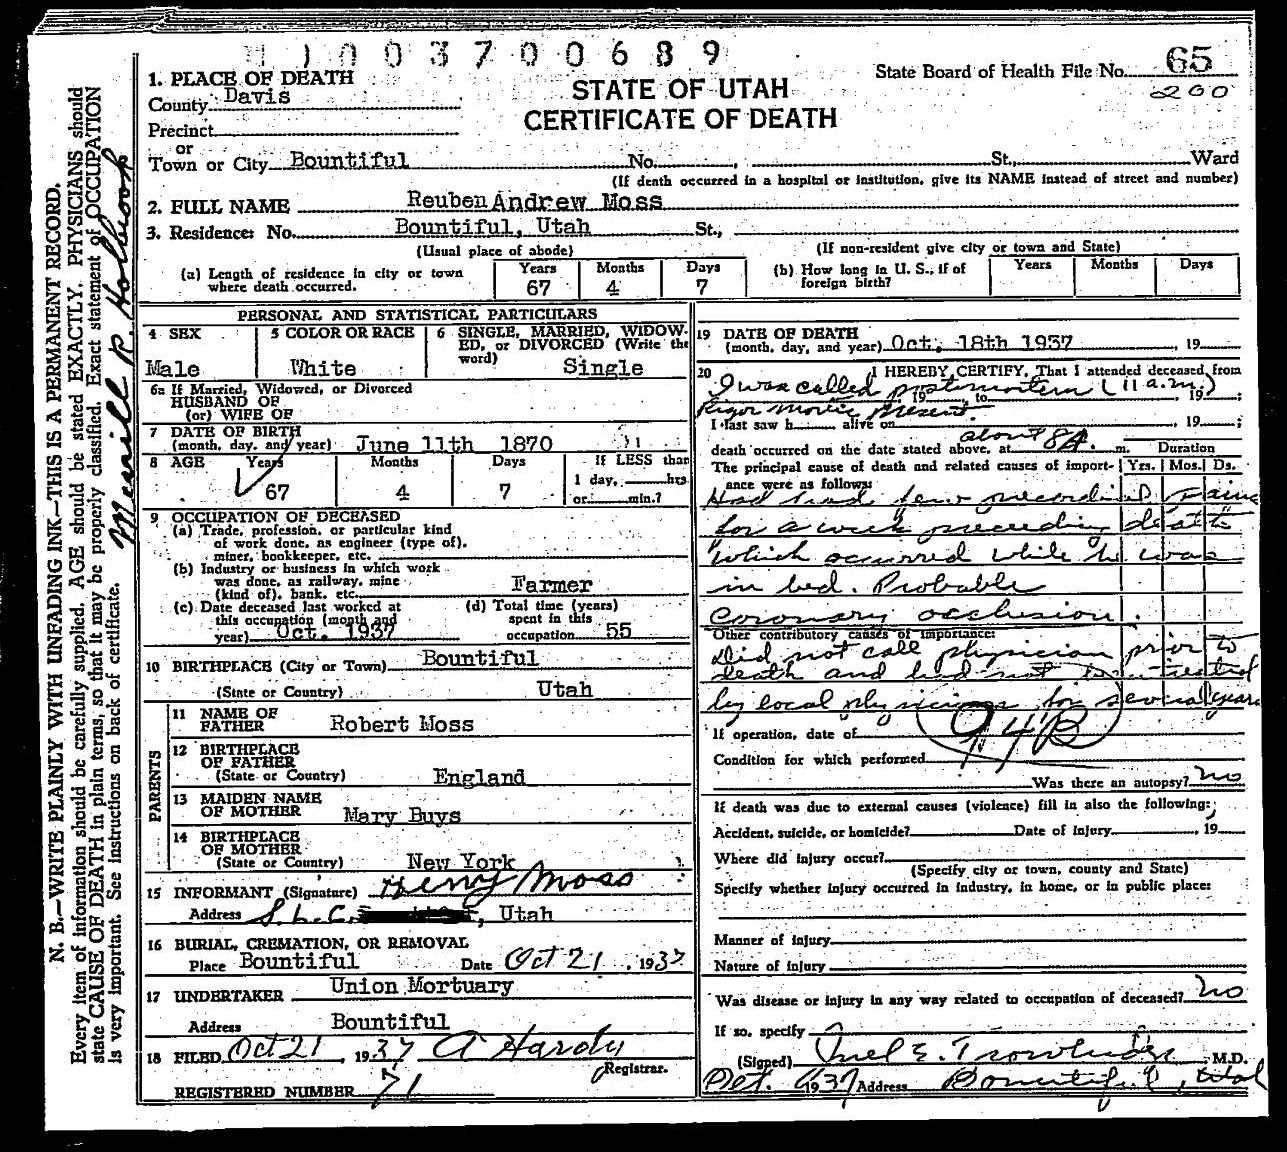 H1003700689
State Board of Health File No. 65
200
STATE OF UTAH
CERTIFICATE OF DEATH
1. PLACE OF DEATH
County Davis
Precinct
or
Town or City Bountiful No. , St., Ward
(If death occurred in a hospital or institution, give its NAME instead of street and number)
2. FULL NAME Reuben Andrew Moss
3. Residence: No. Bountiful, Utah St.,
(Usual place of abode) (If non-resident give city or town and State)
(a) Length of residence in city or town where death occurred. Years 67 Months 4 Days 7
(b) How long in U. S., if of foreign birth? Years Months Days
PERSONAL AND STATISTICAL PARTICULARS
4 SEX Male
5 COLOR OR RACE White
6 SINGLE, MARRIED, WIDOWED, or DIVORCED (Write the word) Single
6a If Married, Widowed, or Divorced
HUSBAND OF
(or) WIFE OF
7 DATE OF BIRTH
(month, day, and year) June 11th 1870
8 AGE Years 67 Months 4 Days 7 If LESS than 1 day, hrs or min.?
9 OCCUPATION OF DECEASED
(a) Trade, profession, or particular kind
of work done, as engineer (type of),
miner, bookkeeper, etc.
(b) Industry or business in which work
was done, as railway, mine
(kind of), bank, etc. Farmer
(c) Date deceased last worked at
this occupation (month and
year) Oct. 1937
(d) Total time (years)
spent in this
occupation 55
10 BIRTHPLACE (City or Town) Bountiful
(State or Country) Utah
PARENTS
11 NAME OF
FATHER Robert Moss
12 BIRTHPLACE
OF FATHER
(State or Country) England
13 MAIDEN NAME
OF MOTHER Mary Buys
14 BIRTHPLACE
OF MOTHER
(State or Country) New York
15 INFORMANT (Signature) Henry Moss
Address S. L. C. , Utah
16 BURIAL, CREMATION, OR REMOVAL
Place Bountiful Date Oct 21 , 1937
17 UNDERTAKER Union Mortuary
Address Bountiful
18 FILED Oct 21 , 1937 A Hardy
Registrar.
REGISTERED NUMBER 71
19 DATE OF DEATH
(month, day, and year) Oct. 18th 1937 , 19
20 I HEREBY CERTIFY, That I attended deceased from
I was called postmortem (11 a.m.)
, 19 , to , 19 ;
Rigor Mortis present.
I last saw h alive on , 19 ;
death occurred on the date stated above, at about 8A. m. Duration
The principal cause of death and related causes of importance were as follows: Yrs. Mos. Ds.
Had had few precordial pains
for a week preceeding death
which occurred while he was
in bed. Probable
coronary occlusion.
Other contributory causes of importance:
Did not call physician prior to
death and had not been treated
by local physicians for several years
94B
If operation, date of
Condition for which performed
Was there an autopsy? no
If death was due to external causes (violence) fill in also the following:
Accident, suicide, or homicide? Date of injury , 19
Where did injury occur?
(Specify city or town, county and State)
Specify whether injury occurred in industry, in home, or in public place:
Manner of injury
Nature of injury
Was disease or injury in any way related to occupation of deceased? no
If so, specify
(Signed) E. Trowbridge , M.D.
Oct. 1937 Address Bountiful, Utah
N. B.—WRITE PLAINLY WITH UNFADING INK—THIS IS A PERMANENT RECORD.
Every item of information should be carefully supplied. AGE should be stated EXACTLY. PHYSICIANS should
state CAUSE OF DEATH in plain terms, so that it may be properly classified. Exact statement of OCCUPATION
is very important. See instructions on back of certificate.
Merrill R. Holbrook